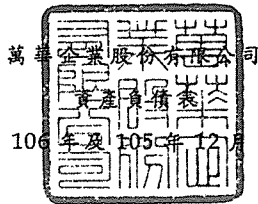 萬華企業股份有限公司
資產負債表
106 年及 105 年 12 月